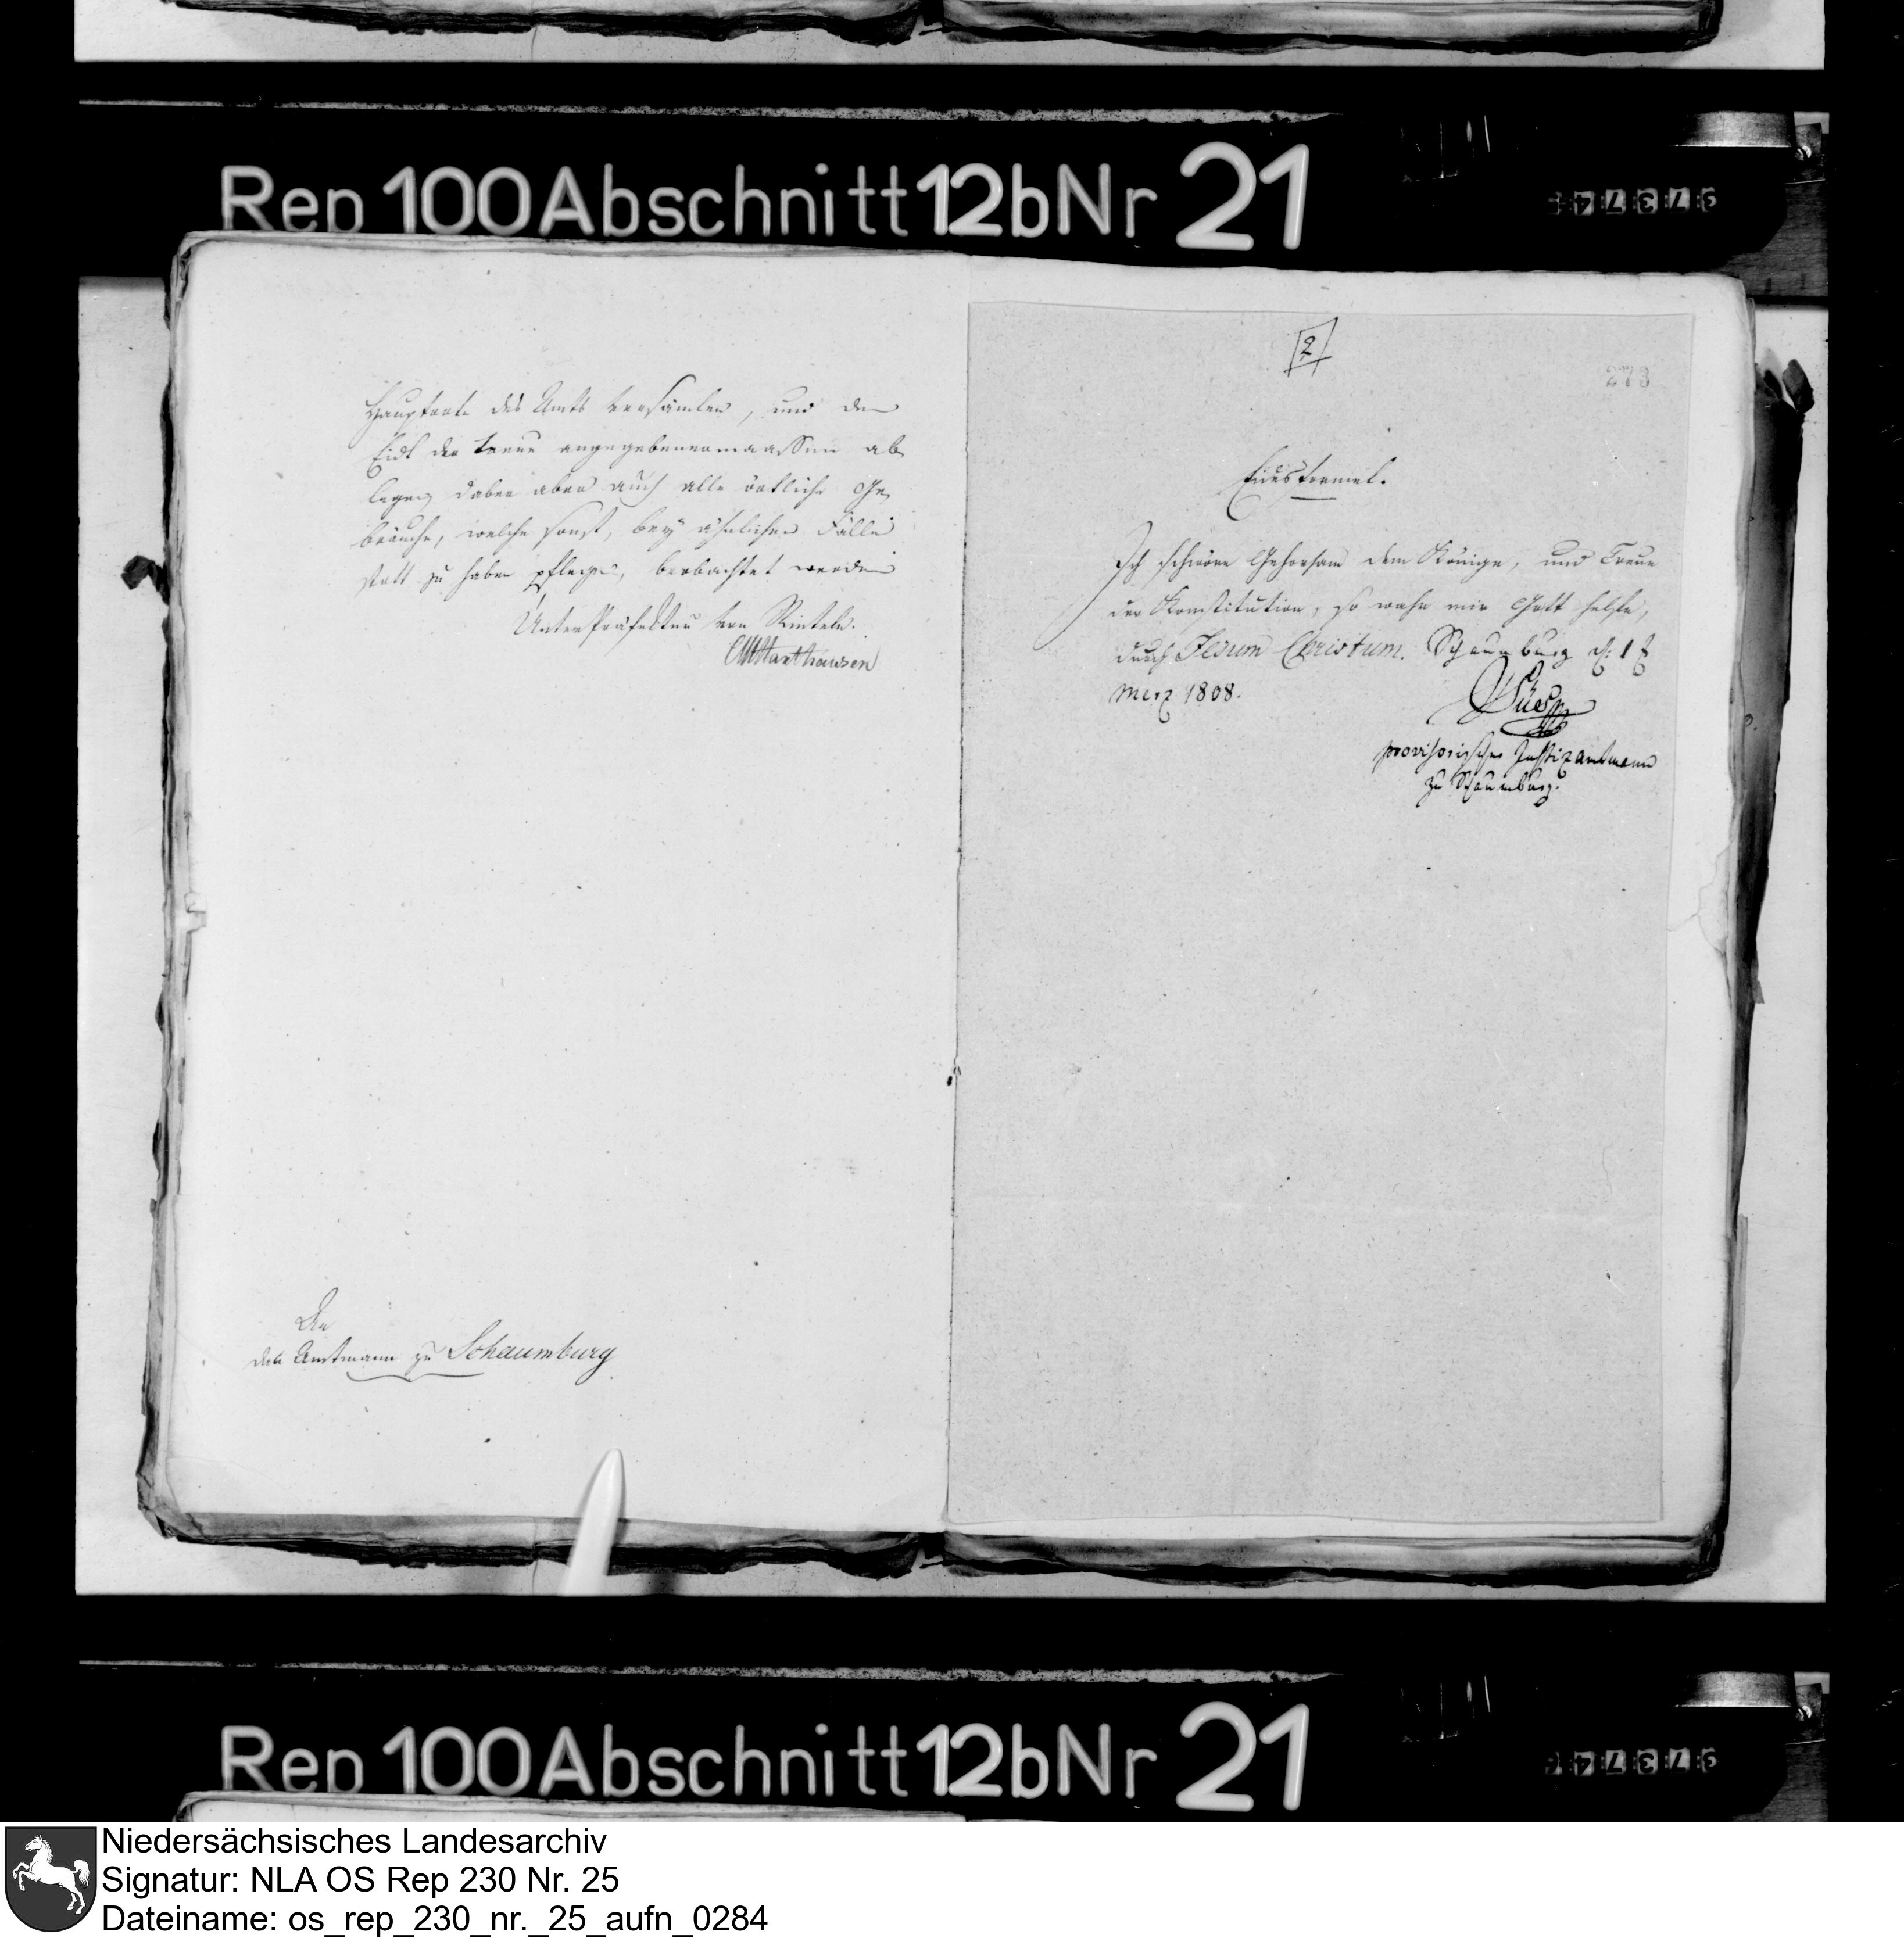 Rep 100 Abschnitt 12b Nr 21
Hauptorte des Amts versamlen, und den
Eidt der Treue angegebenermaassen ab
legen, dabei aber auch alle örtliche Ge
bräuche, welche sonst, bey ähnlichen Fällen
statt zu haben pflegen, beobachtet werden
Unter Präfektur von Rinteln.
An
den Amtmann zu Schaumburg
2
273
Eidesformel.
Ich schwöre Gehorsam dem Könige, und Treue
der Konstitution, so wahr mir Gott helfe,
durch Jesum Christum. Schaumburg
Merz 1808.
provisorischer Justizamtmann
zu Schaumburg.
Rep 100 Abschnitt 12b Nr 21
Niedersächsisches Landesarchiv
Signatur: NLA OS Rep 230 Nr. 25
Dateiname: os_rep_230_nr._25_aufn_0284